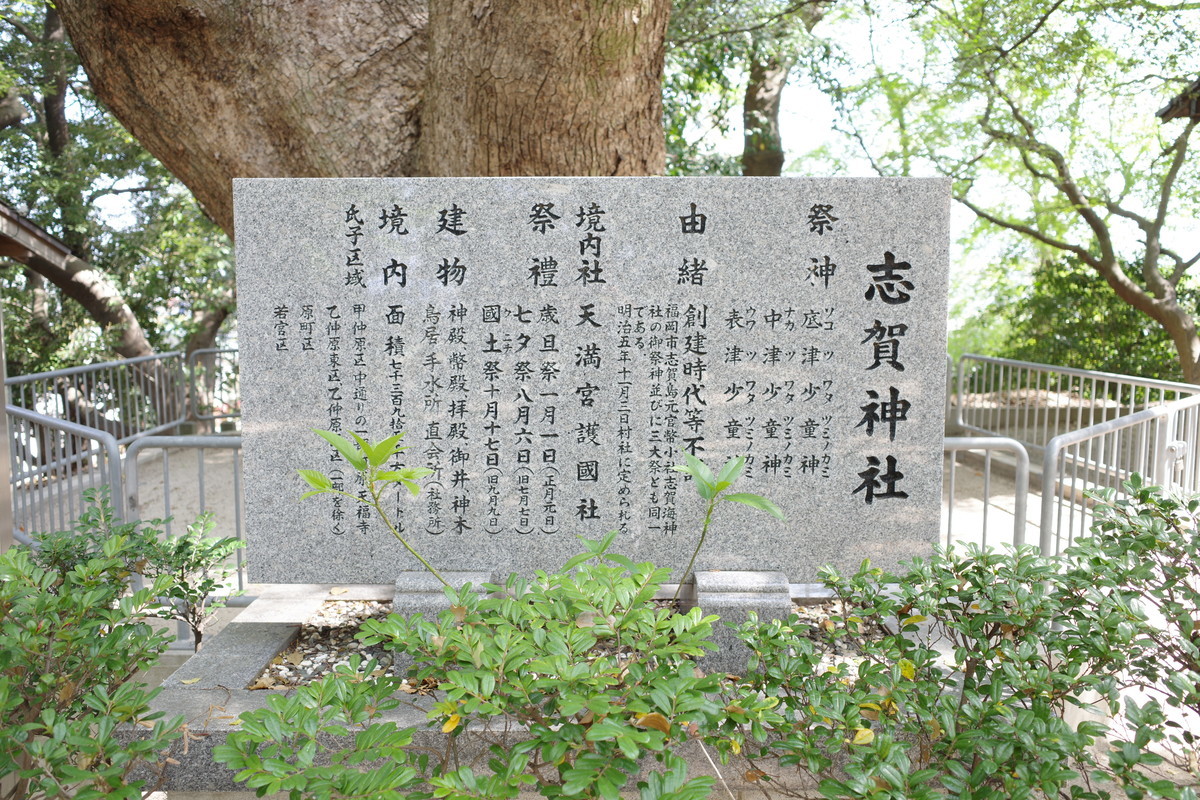 志賀神社
祭神
底津少童神
ソコツワタツミノカミ
中津少童神
ナカツワタツミノカミ
表津少童
ウワツワタツミノカミ
由緒
創建時代等不
福岡市志賀島元官幣小社志賀海神
社の御祭神並びに三大祭とも同一
である。
明治五年十一月三日村社に定められる
境内社
天満宮護國社
祭禮
歳旦祭一月一日(正月元日)
七夕祭八月六日(旧七月七日)
國土祭十月十七日(旧九月九日)
クニチ
建物
神殿幣殿拝殿御井神木
鳥居手水所直会所(社務所)
境内
面積七千三百九拾
氏子区域
甲仲原区中通りの一 天福寺
乙仲原東区乙仲原 区(一部を除く)
原町区
若宮区